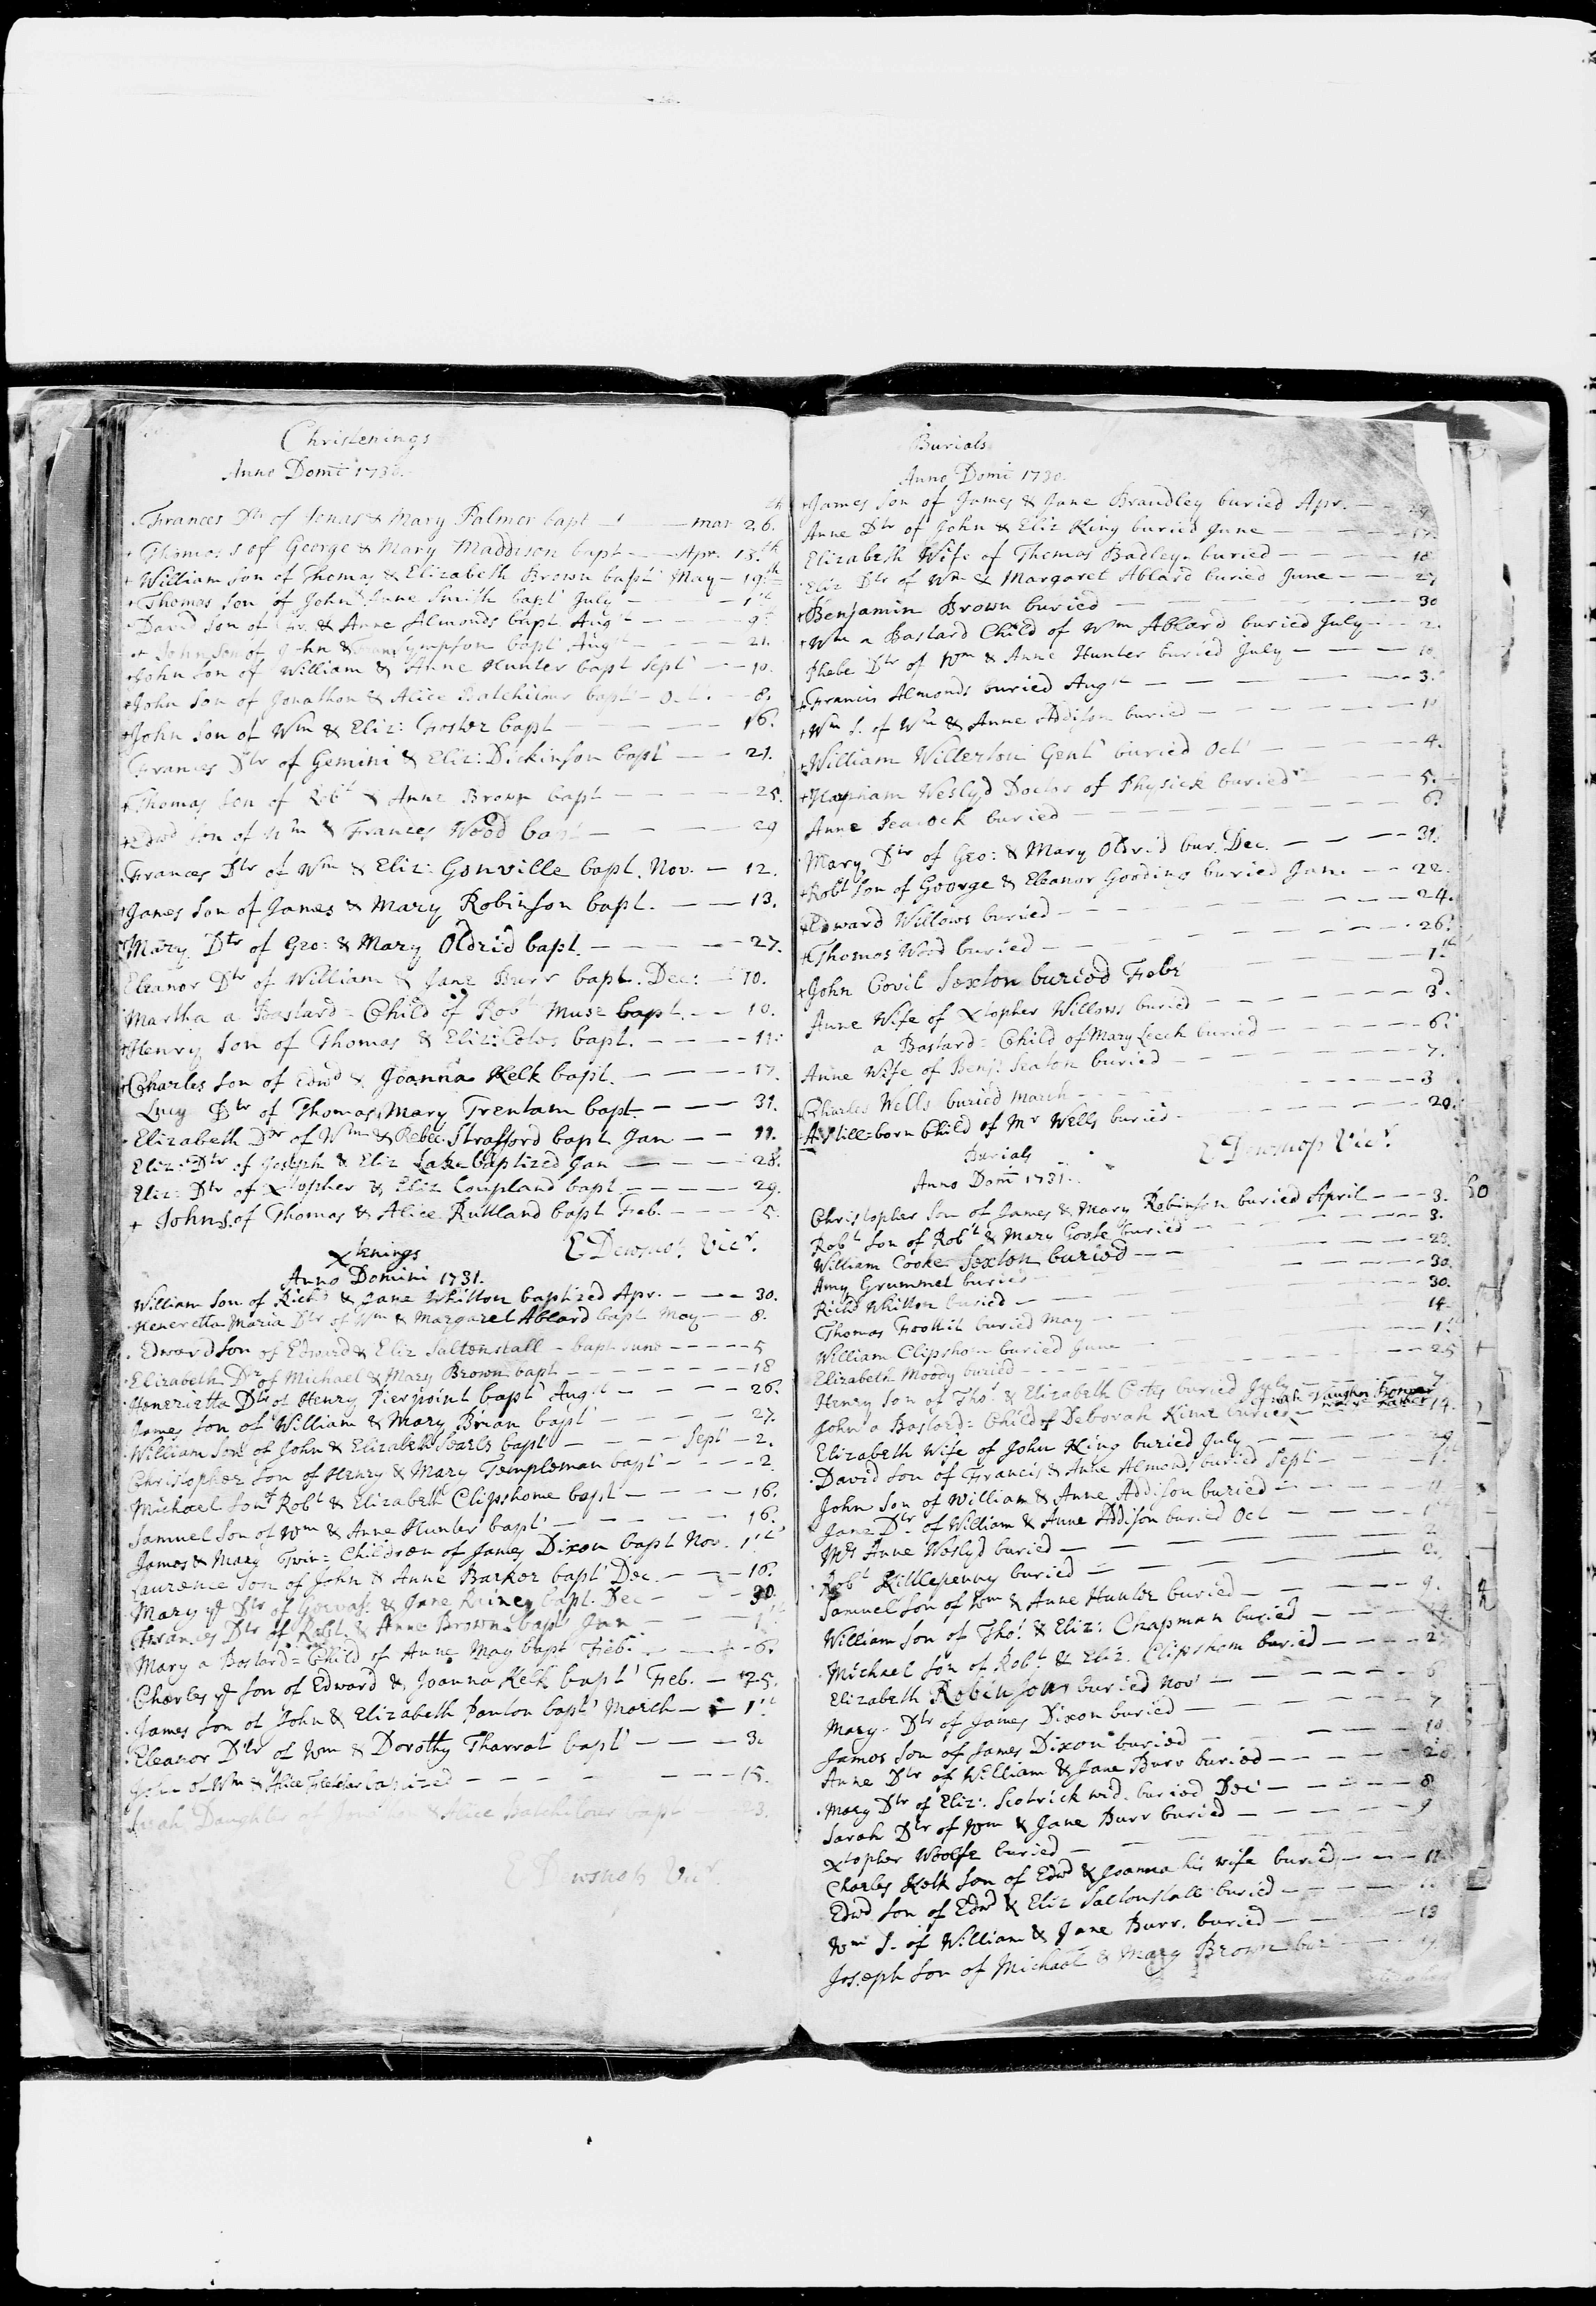 Christenings
Anno Domi 1730.
Frances Dtr of Jonas & Mary Palmer bapt — mar 26.th
Thomas s of George & Mary Maddison bapt — Apr. 13.th
William son of Thomas & Elizabeth Brown bapt May — 19th
Thomas son of John & Jane Smith bapt July — 1st
David son of & Anne Almonds bapt Augst — 9
John son of John & bapt Augst — 21.
John son of William & Anne Hunter bapt Sept — 10.
John son of Jonathon & Alice Batchilour bapt — Oct. — 8.
John son of Wm & Eliz: Foster bapt — 16.
Frances Dtr of Gemini & Eliz: Dickinson bapt — 21.
Thomas son of Robt & Anne Brown bapt — 25.
Edwd son of Wm & Frances Wood bapt — 29
Frances Dtr of Wm & Eliz: Gonville bapt. Nov. — 12.
James son of James & Mary Robinson bapt. — 13.
Mary Dtr of Geo: & Mary Oldrid bapt. — 27.
Eleanor Dtr of William & Jane Burr bapt. Dec: — 10.
Martha a Bastard = Child of Robt Muse bapt. — 10.
Henry son of Thomas & Eliz: Cotes bapt. — 11.
Charles son of Edwd & Joanna Kelk bapt. — 17.
Lucy Dtr of Thomas Mary Trentam bapt — 31.
Elizabeth Dtr of Wm & Rebec. Strafford bapt Jan — 11.
Eliz: Dtr of Joseph & Eliz Lake baptized Jan — 28.
Eliz: Dtr of Xtopher & Eliz Coupland bapt — 29.
John s. of Thomas & Alice Rutland bapt Feb. — 5.
E Dewsnop Vicr.
Xtenings
Anno Domini 1731.
William son of Richd & Jane Whitton baptized Apr. — 30.
Heneretta Maria Dtr of Wm & Margaret Ablard bapt May — 8.
Edward son of Edward & Eliz Saltonstall — bapt June — 5
Elizabeth Dtr of Michael & Mary Brown bapt — 18
Honerietta Dtr of Henry Pierpoint bapt Augst — 26.
James son of William & Mary Brian bapt — 27.
William son of John & Elizabeth Searls bapt — Sept — 2.
Christopher son of Henry & Mary Templeman bapt — 2
Michael son of Robt & Elizabeth Clipshome bapt — 16.
Samuel son of Wm & Anne Hunter bapt — 16.
James & Mary Twin = Children of James Dixon bapt Nov. 1st
Laurence son of John & Anne Barker bapt Dec. — 16.
Mary ye Dtr of Gervass & Jane Rainey bapt. Dec — 30.
Frances Dtr of Robt. & Anne Brown bapt Jan — 1st
Mary a Bastard = Child of Anne May bapt Feb. — 6.
Charles ye son of Edward & Joanna Kelk bapt Feb. — 25.
James son of John & Elizabeth Panton bapt March — 1st
Eleanor Dtr of Wm & Dorothy Tharrat bapt — 3.
John of Wm & Alice Fletcher baptized — 15.
Sarah Daughter of Jonathon & Alice Batchilour bapt 23.
E Dewsnop Vicr.
Burials
Anno Domi 1730.
James son of James & Jane Brandley buried Apr. — 29
Anne Dtr of John & Eliz King buried June — 17.
Elizabeth Wife of Thomas Badley buried — 18
Eliz Dtr of Wm & Margaret Ablard buried June — 27
Benjamin Brown buried — 30
Wm a Bastard Child of Wm Ablard buried July — 2.
Phebe Dtr of Wm & Anne Hunter buried July — 10.
Francis Almonds buried Augst — 3.
Wm s. of Wm & Anne Addison buried — 10
William Willerton Gent buried Oct — 4.
Weslyd Doctor of Physick buried — 5.
Anne Peacock buried — 6.
Mary Dtr of Geo: & Mary Oldrid bur. Dec. — 31.
Robt son of George & Eleanor Gooding buried Jan. — 22.
Edward Willows buried — 24.
Thomas Wood buried — 26.
John Covil Sexton buried Febr — 1st
Anne Wife of Xtopher Willows buried — 3d
a Bastard = Child of Mary Leech buried — 6.
Anne Wife of Benj: Seaton buried — 7.
Charles Wells buried March — 3
A still=born Child of Mr Wells buried — 20.
E Dewsnop Vicr.
Burials
Anno Dom 1731.
Christopher son of James & Mary Robinson buried April — 3.
Robt son of Robt & Mary Goose buried — 3.
William Cooke Sexton buried — 23.
Amy Grummet buried — 30.
Richd Whitton buried — 30.
Thomas Foottit buried May — 14.
William Clipshom buried June — 1st
Elizabeth Moody buried — 25
Henry son of Tho: & Elizabeth Cotes buried July — 7.
John a Bastard = Child of Deborah Kime buried — 14.
Elizabeth Wife of John King buried July — 29
David son of Francis & Anne Almonds buried Sept — 1st
John son of William & Anne Addison buried — 11
Jane Dtr of William & Anne Addison buried Oct — 1st
Mrs Anne Weslyd buried — 2
Robt Kittlepenny buried — 2.
Samuel son of Wm & Anne Hunter buried — 9.
William son of Tho: & Eliz: Chapman buried — 14
Michael son of Robt & Eliz. Clipshom buried — 27
Elizabeth Robinson buried Nov — 6
Mary Dtr of James Dixon buried — 7
James son of James Dixon buried — 10
Anne Dtr of William & Jane Burr buried — 20.
Mary Dtr of Eliz: Scotrick wid. buried Dec — 8
Sarah Dtr of Wm & Jane Burr buried — 9
Xtopher Woolfe buried —
Charles Kelk son of Edwd & Joanna his wife buried — 11
Edwd son of Edwd & Eliz Saltonstall buried —
Wm s. of William & Jane Burr. buried — 13
Joseph son of Michael & Mary Brown bur — 19